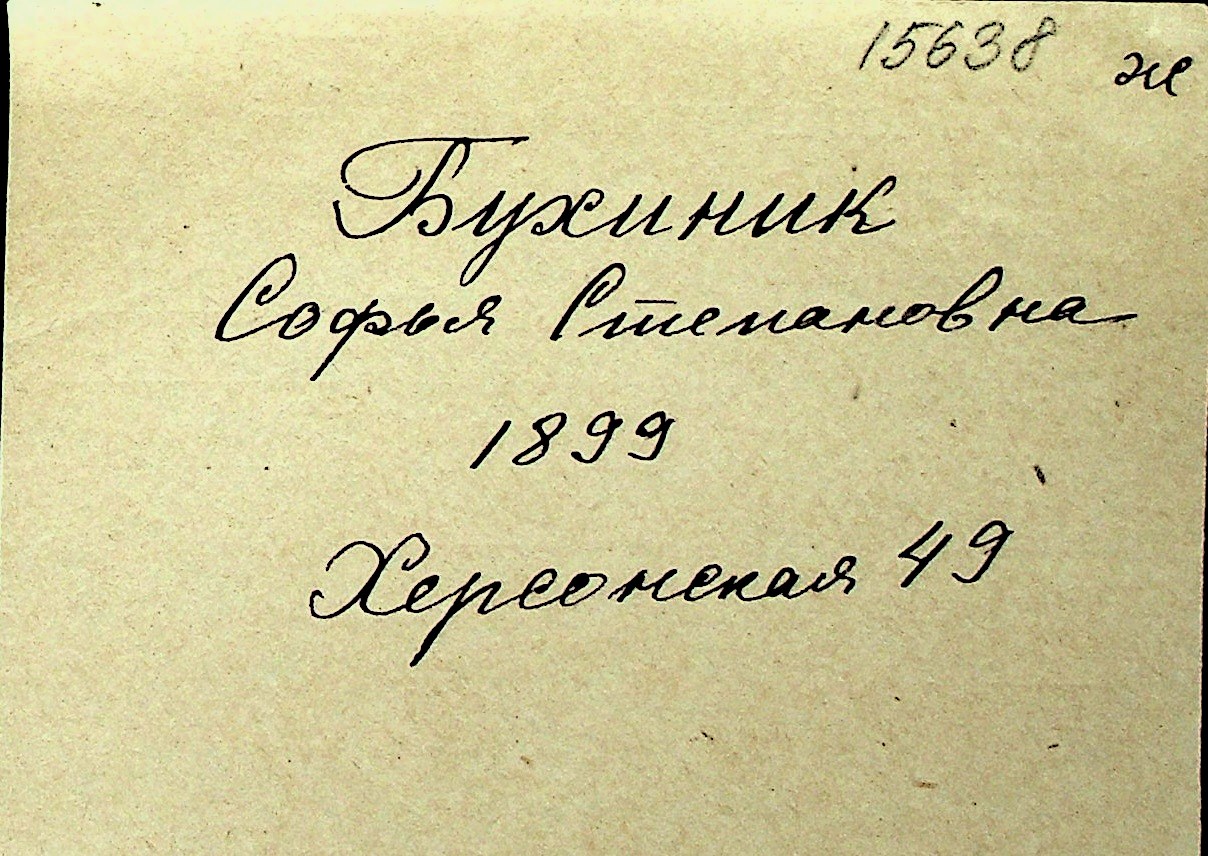 15638 ж
Бухиник
Софья Степановна
1899
Херсонская 49